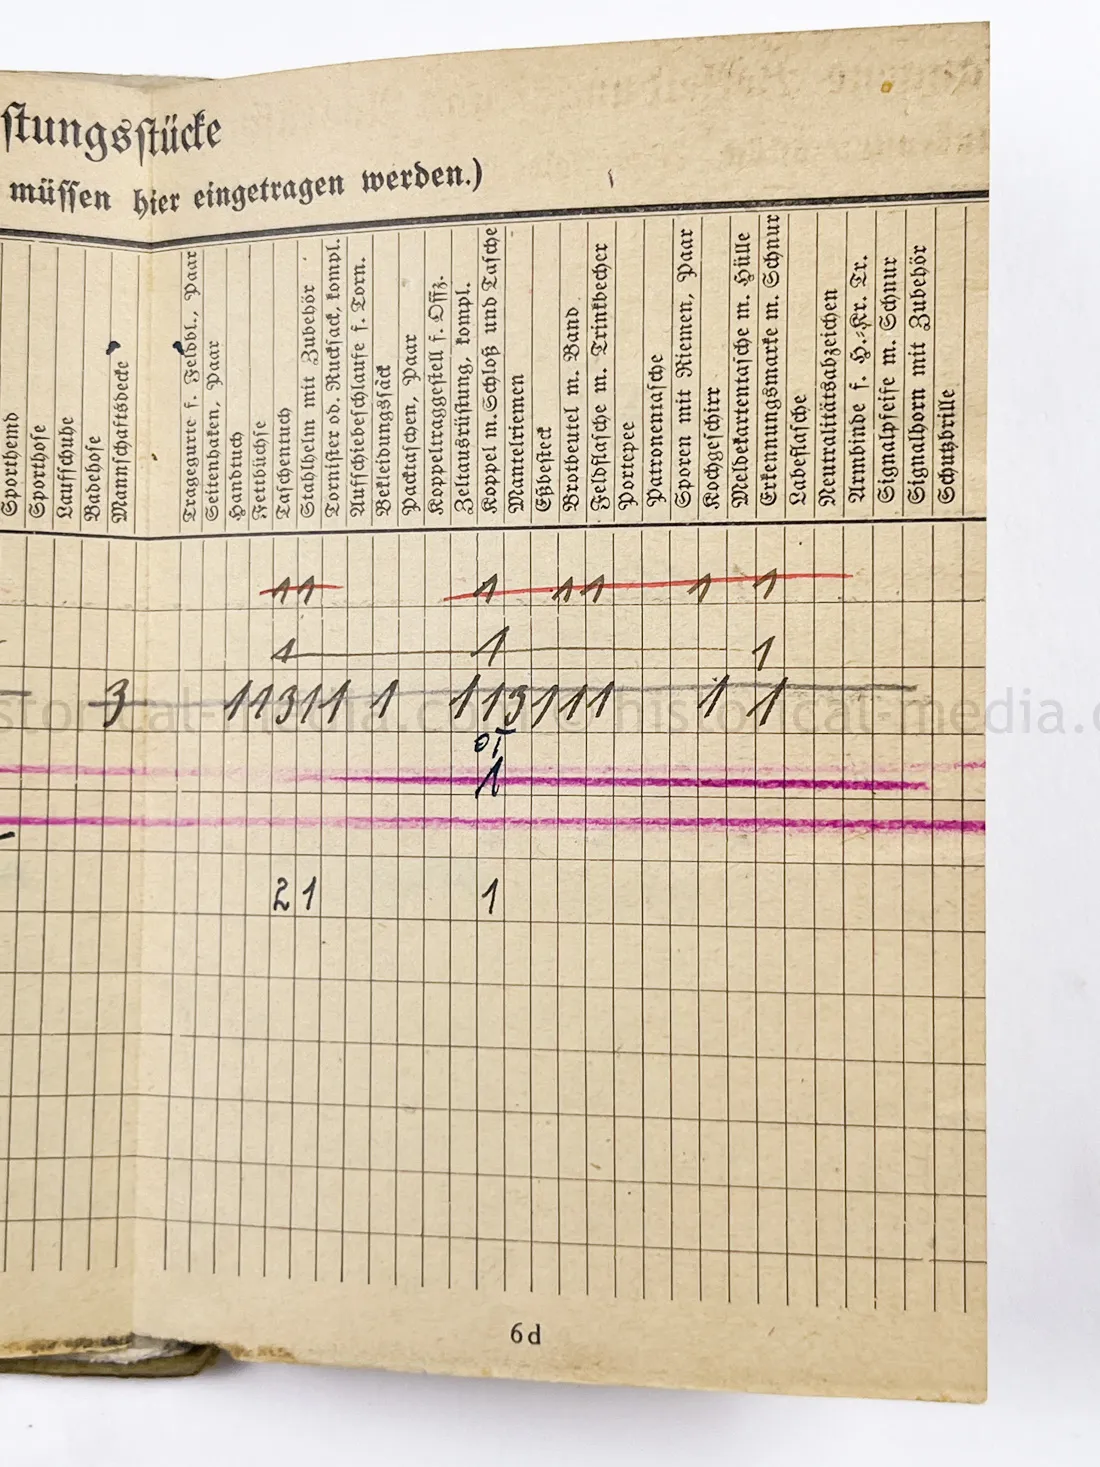 ſtungsſtücke
müſſen hier eingetragen werden.)
Sporthemd
Sporthoſe
Laufſchuhe
Badehoſe
Mannſchaftsdecke
Tragegurte f. Feldbl., Paar
Seitenhaken, Paar
Handtuch
Fettbüchſe
Taſchentuch
Stahlhelm mit Zubehör
Torniſter od. Ruckſack, kompl.
Aufſchiebeſchlaufe f. Torn.
Bekleidungsſack
Packtaſchen, Paar
Koppeltraggeſtell f. Offz.
Zeltausrüſtung, kompl.
Koppel m. Schloß und Taſche
Mantelriemen
Eßbeſteck
Brotbeutel m. Band
Feldflaſche m. Trinkbecher
Portepee
Patronentaſche
Sporen mit Riemen, Paar
Kochgeſchirr
Meldekartentaſche m. Hülle
Erkennungsmarke m. Schnur
Labeflaſche
Neutralitätsabzeichen
Armbinde f. H.-Kr. Tr.
Signalpfeife m. Schnur
Signalhorn mit Zubehör
Schutzbrille
1 1 1 1 1 1 1
1 1 1
3 1 1 3 1 1 1 1 1 3 1 1 1 1 1
1
2 1 1
6d